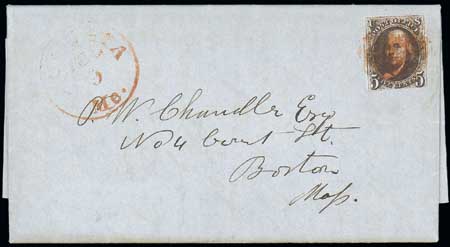 POST OFFICE
5 FIVE CENTS 5
Me.
P. W. Chandler Esq
No 4 Court St.
Boston
Mass.